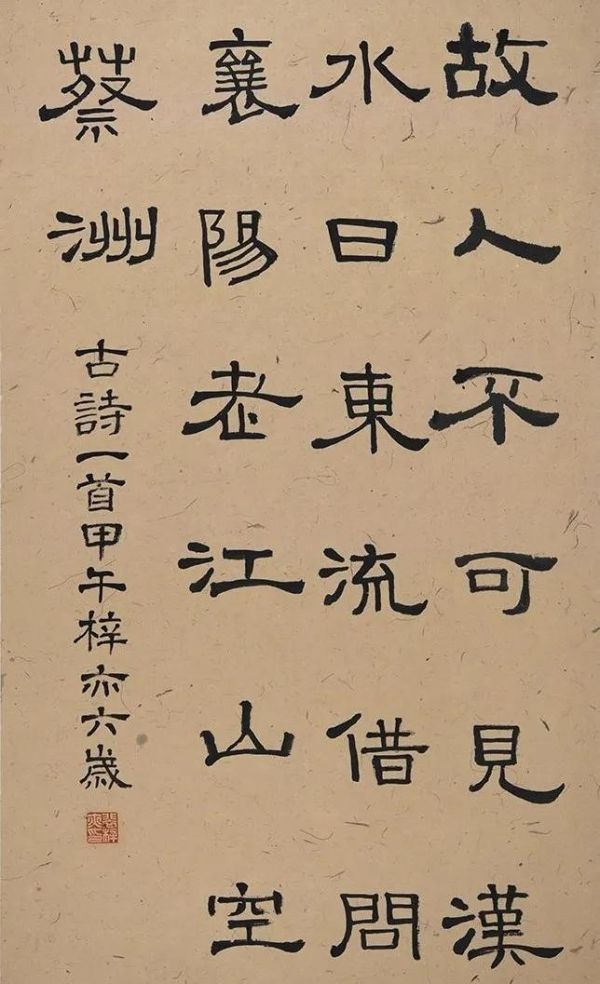 故人不可見漢
水日東流借問
襄陽老江山空
蔡洲
古詩一首甲午梓亦六歲